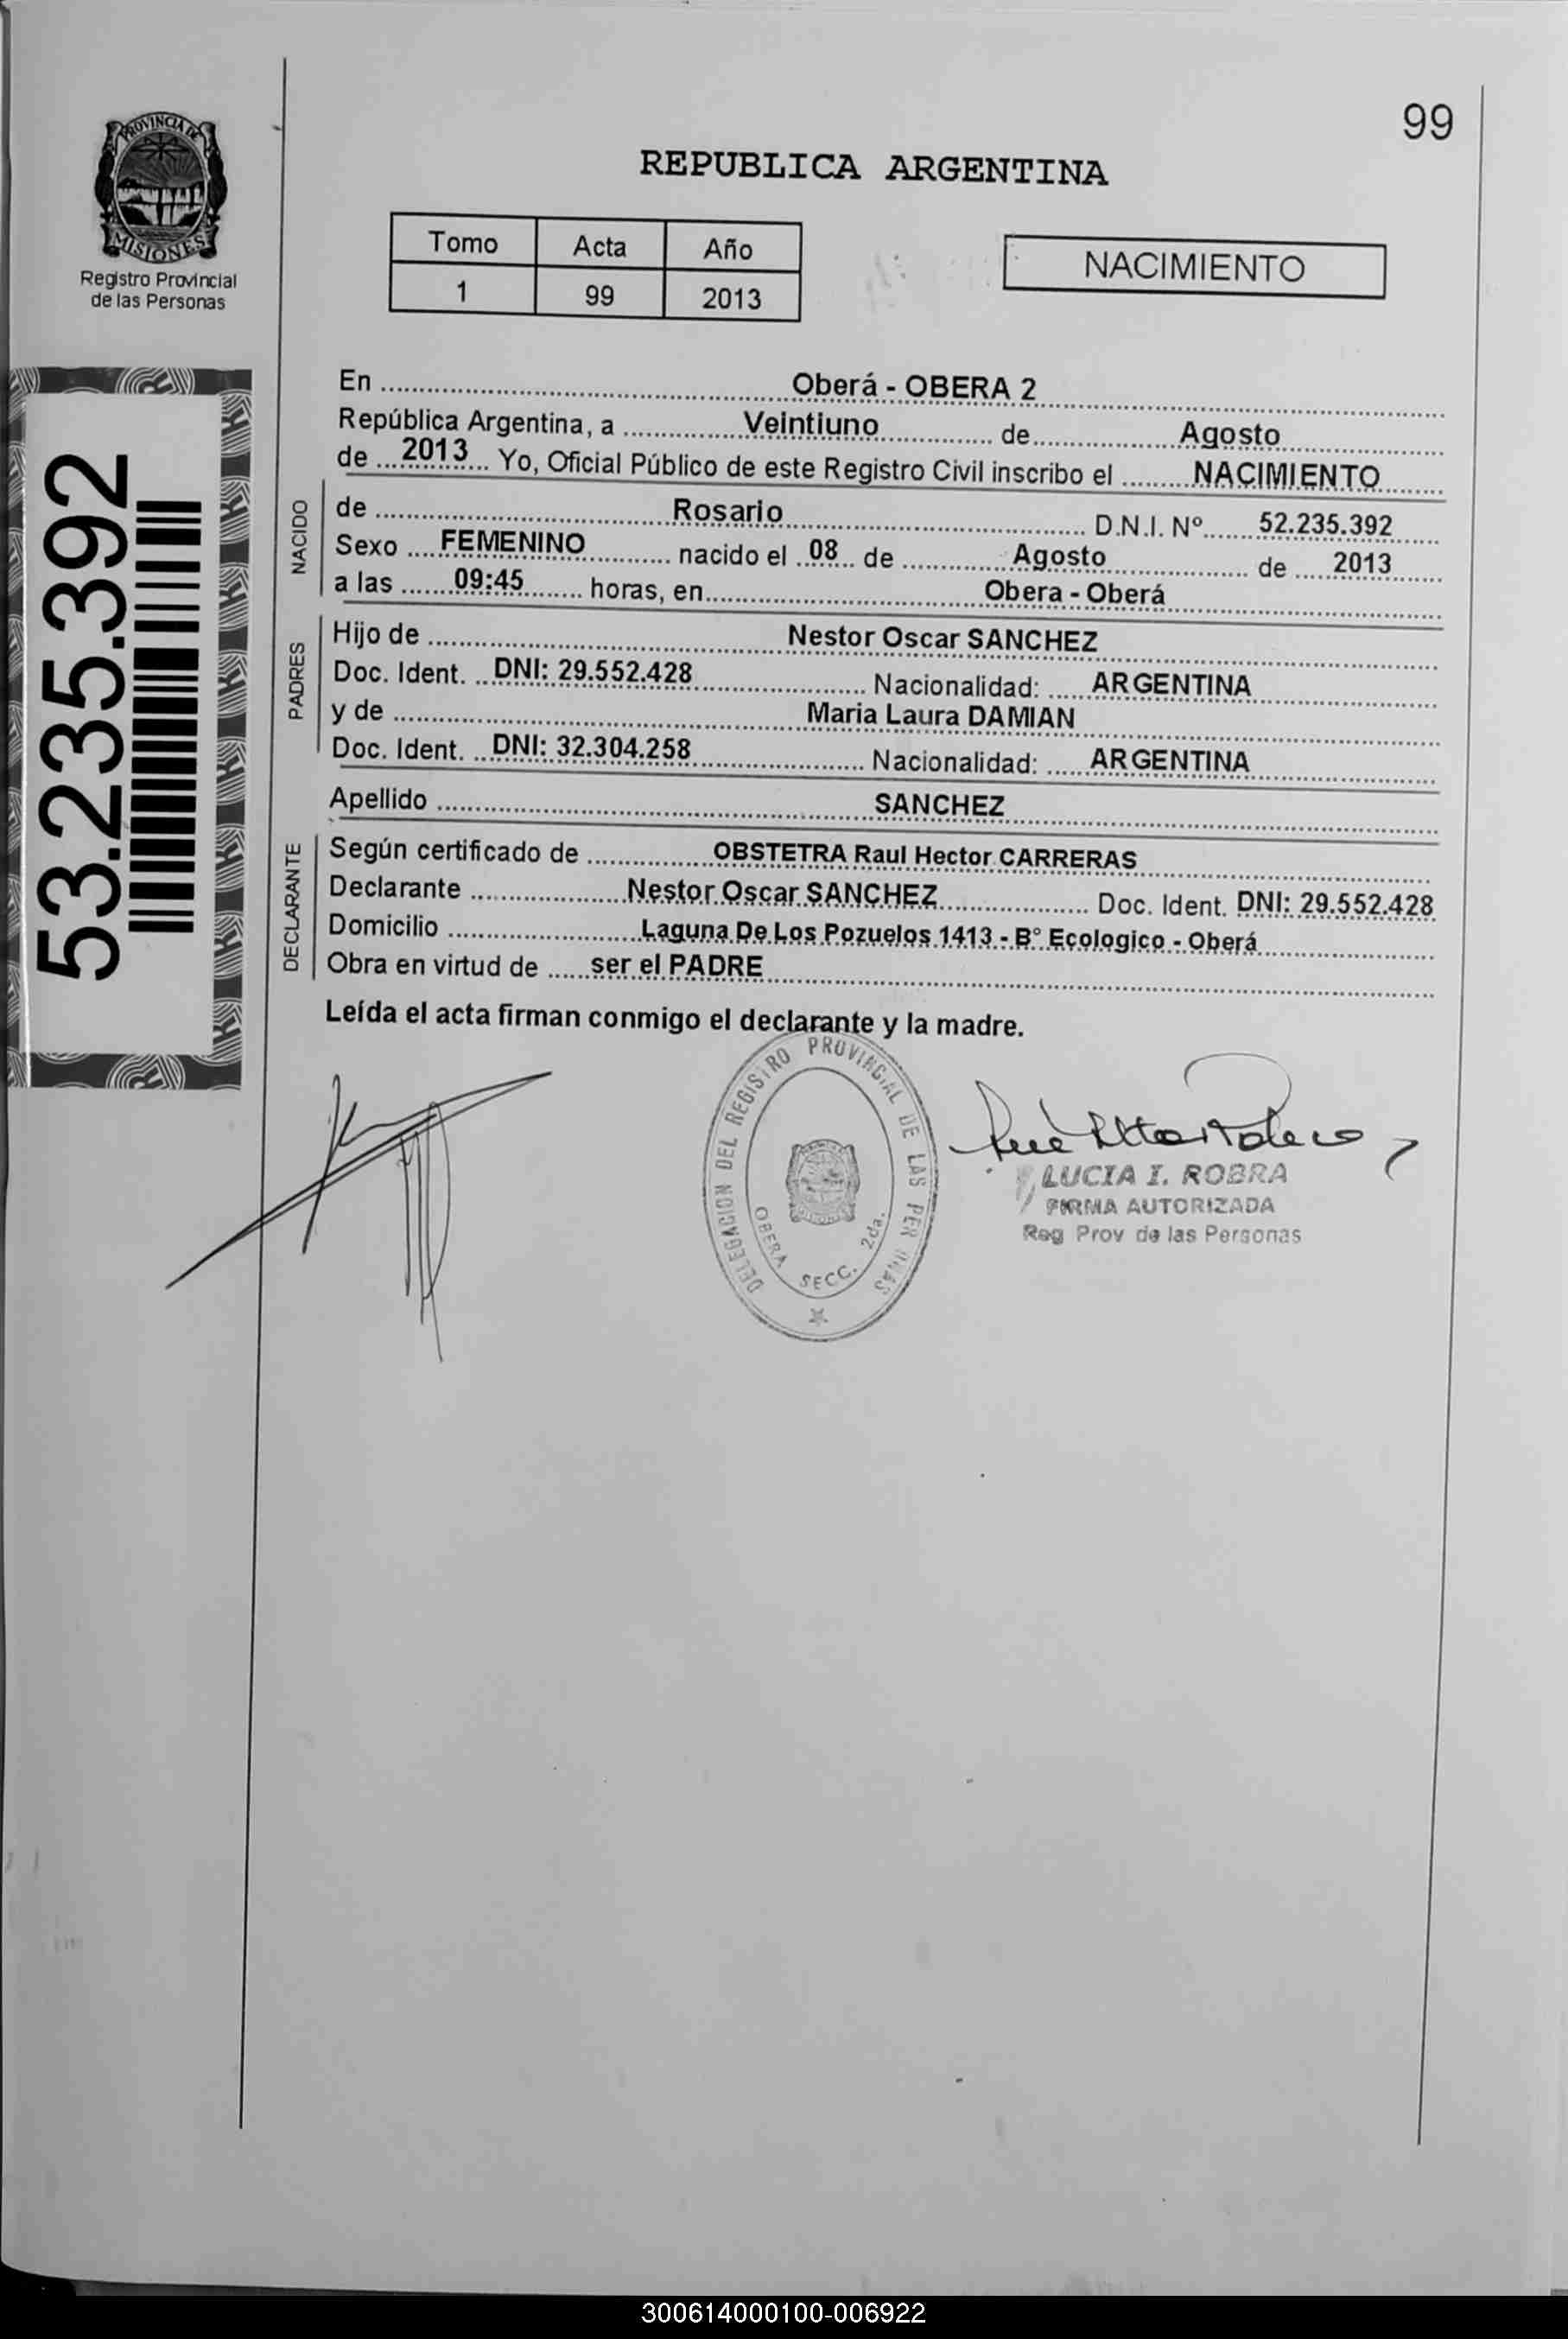 99
PROVINCIA DE
MISIONES
Registro Provincial
de las Personas
REPUBLICA ARGENTINA
Tomo Acta Año
1 99 2013
NACIMIENTO
53.235.392
En Oberá - OBERA 2
República Argentina, a Veintiuno de Agosto
de 2013 Yo, Oficial Público de este Registro Civil inscribo el NACIMIENTO
NACIDO
de Rosario D.N.I. Nº 52.235.392
Sexo FEMENINO nacido el 08 de Agosto de 2013
a las 09:45 horas, en Obera - Oberá
PADRES
Hijo de Nestor Oscar SANCHEZ
Doc. Ident. DNI: 29.552.428 Nacionalidad: ARGENTINA
y de Maria Laura DAMIAN
Doc. Ident. DNI: 32.304.258 Nacionalidad: ARGENTINA
Apellido SANCHEZ
DECLARANTE
Según certificado de OBSTETRA Raul Hector CARRERAS
Declarante Nestor Oscar SANCHEZ Doc. Ident. DNI: 29.552.428
Domicilio Laguna De Los Pozuelos 1413 - Bº Ecologico - Oberá
Obra en virtud de ser el PADRE
Leída el acta firman conmigo el declarante y la madre.
DELEGACION DEL REGISTRO PROVINCIAL DE LAS
OBERA SECC. 2da.
LUCIA I. ROBRA
FIRMA AUTORIZADA
Reg Prov de las Personas
300614000100-006922